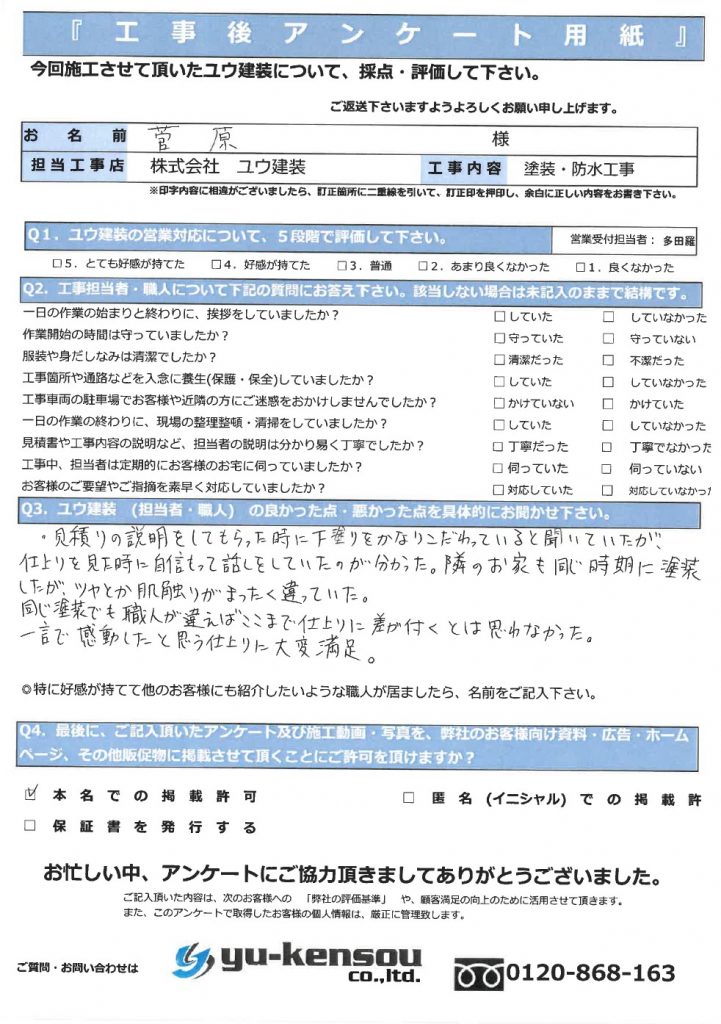 『工事後アンケート用紙』
今回施工させて頂いたユウ建装について、採点・評価して下さい。
ご返送下さいますようよろしくお願い申し上げます。
お名前 菅原 様
担当工事店 株式会社 ユウ建装 工事内容 塗装・防水工事
※印字内容に相違がございましたら、訂正箇所に二重線を引いて、訂正印を押印し、余白に正しい内容をお書き下さい。
Q1．ユウ建装の営業対応について、５段階で評価して下さい。 営業受付担当者：多田羅
□５．とても好感が持てた □４．好感が持てた □３．普通 □２．あまり良くなかった □１．良くなかった
Q2．工事担当者・職人について下記の質問にお答え下さい。該当しない場合は未記入のままで結構です。
一日の作業の始まりと終わりに、挨拶をしていましたか？ □していた □ していなかった
作業開始の時間は守っていましたか？ □守っていた □ 守っていない
服装や身だしなみは清潔でしたか？ □清潔だった □ 不潔だった
工事箇所や通路などを入念に養生(保護・保全)していましたか？ □していた □ していなかった
工事車両の駐車場でお客様や近隣の方にご迷惑をおかけしませんでしたか？ □かけていない □ かけていた
一日の作業の終わりに、現場の整理整頓・清掃をしていましたか？ □していた □ していなかった
見積書や工事内容の説明など、担当者の説明は分かり易く丁寧でしたか？ □丁寧だった □ 丁寧でなかった
工事中、担当者は定期的にお客様のお宅に伺っていましたか？ □伺っていた □ 伺っていない
お客様のご要望やご指摘を素早く対応していましたか？ □対応していた □ 対応していなかった
Q3．ユウ建装 (担当者・職人) の良かった点・悪かった点を具体的にお聞かせ下さい。
・見積りの説明をしてもらった時に下塗りをかなりこだわっていると聞いていたが、
仕上りを見た時に自信もって話しをしていたのが分かった。隣のお家も同じ時期に塗装
したが、ツヤとか肌触りがまったく違っていた。
同じ塗装でも職人が違えばここまで仕上りに差が付くとは思わなかった。
一言で感動したと思う仕上りに大変満足。
◎特に好感が持てて他のお客様にも紹介したいような職人が居ましたら、名前をご記入下さい。
Q4．最後に、ご記入頂いたアンケート及び施工動画・写真を、弊社のお客様向け資料・広告・ホーム
ページ、その他販促物に掲載させて頂くことにご許可を頂けますか？
☑ 本名での掲載許可 □ 匿名(イニシャル)での掲載許
□ 保証書を発行する
お忙しい中、アンケートにご協力頂きましてありがとうございました。
ご記入頂いた内容は、次のお客様への 「弊社の評価基準」 や、顧客満足の向上のために活用させて頂きます。
また、このアンケートで取得したお客様の個人情報は、厳正に管理致します。
ご質問・お問い合わせは yu-kensou co.,ltd. 0120-868-163